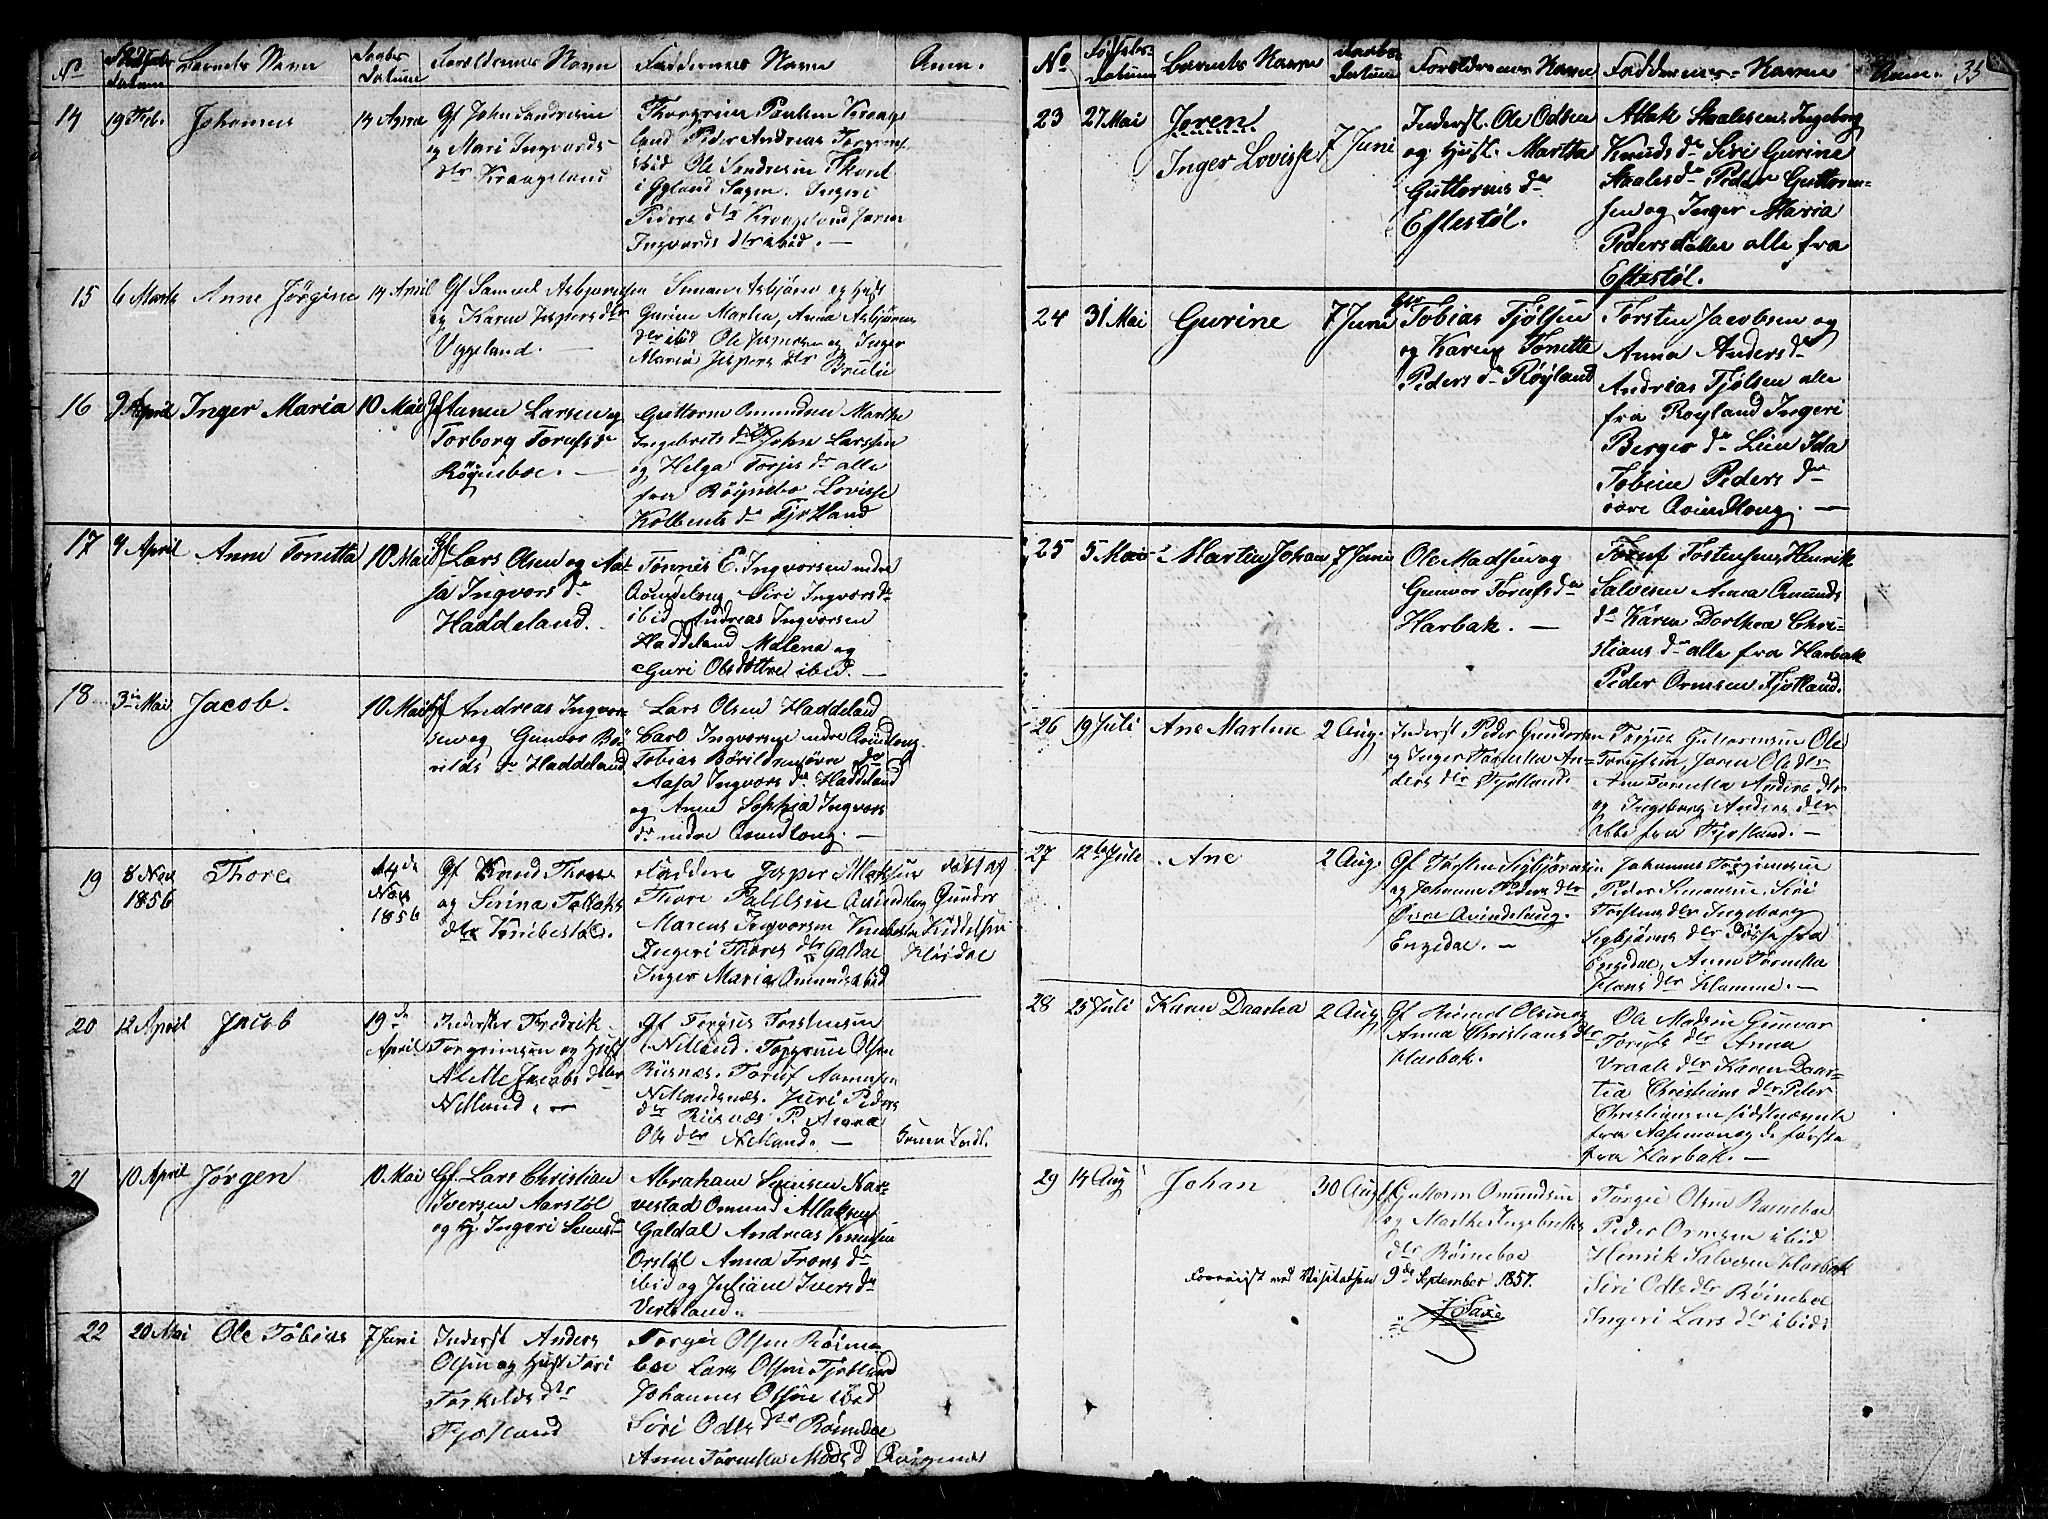 No Fødsels- Datum Barnets Navn Daabs- Datum Forældrenes Navn Faddernes Navn Anm.
14 19 Feb. Johannes 14 April Gf John Sandresen
og Mari Ingvards-
dtr Kraageland
Thorgrim Paulsen Kraage-
land Peder Andreas Torgrims
ibid Ole Sandresen
i Øgland Sogn. Ingeri
Peders dtr Kraageland Joren
Ingvards dtr ibid. —
15 6 Marts Anne Jørgine 14 April Gf Samuel Asbjørnsen
og Karen Jespers dtr
Viggeland. —
Simon Asbjørns og Hust
Gurine Martea, Anna Asbjørns
dtr ibid Ole Jespersen og Inger
Maria Jespers dtr Bruli
16 9 April Inger Maria 10 Mai Gf Aanen Larsen og
Torborg Torufs dr
Røgneboe. —
Guttorm Omundsen Marthe
Ingebrets dr John Larssen
og Helga Torjes dr alle
fra Røgnebo Lovisse
Kolbents dr Fjotland
17 4 April Anne Tonetta 10 Mai Gf Lars Olsen og Aa-
sa Ingvors dr
Haddeland.
Tønnes E. Ingvorsen nedre
Qvindlong Siri Ingvors dr
ibid Andreas Ingvorsen
Haddeland Malena og
Guri Olsdøttre ibid. —
18 3 Mai Jacob. 10 Mai Gf Andreas Ingvor-
sen og Gunvor Bø-
rilds dr Haddeland
Lars Olsen Haddeland
Carl Ingvorsen nedre Qvindlong.
Tobias Børildsen øvre do
Aasa Ingvors dr Haddeland
og Anne Sophia Ingvors
dr nedre Qvindlong. —
19 8 Nov 1856 Thore Nov 1856 Gf Knud Thores
og Serina Tallaks
dtr Knibestøl.
Faddere Jesper
Thore Pallesen Qvindlog
Marcus Ingvorsen Knibestøl
Ingeri Thores dtr Galdal
Inger Maria Omunds ibid
døbt af
Gunder
20 12 April Jacob 19de April Inderster Fredrik
Torgrimsen og Hust
Alette Jacobs dtr
Netland. —
Gf Torjus Torstensen
Netland. Torgrim Olsen
Risnæs. Toruf Aanensen
Netlandsnæs. Juri Peders
dtr Risnæs P. Anna
Ols dtr Netland. —
21 10 April Jørgen 10 Mai Gf. Lars Christian
Iversen Aarstøl
og Hj. Ingeri Sems d
Abraham Semsen Nar-
vestad Omund Atlaksen
Galdal Andreas Knudsen
Orstøl Anna Trons dr
ibid og Juliane Ivers dr
Virteland.
22 20 Mai Ole Tobias 7 Juni Inderst Anders
Olsen og Hust Tori
Torkelds dtr
Fjotland
Torgei Olsen Røine-
boe Lars Olsen Fjotland
Johannes Olsen ibid
Siri Odls dtr Røineboe
Anne Tørnetta Mads d Røignæs
No Fødsels- Datum Barnets Navn Daabs- Datum Forældrenes Navn Faddernes Navn Anm. 35
23 27 Mai Joren
Inger Lovisse 7 Juni Inderst. Ole Odlsen
og Hust. Martha
Guttorms dr
Eftestøl.
Atlak Staalesen, Ingeborg
Knuds dr Siri Gurine
Staales dr Peder Guttorm-
sen og Inger Maria
Pedersdatter alle fra
Eftestøl.
24 31 Mai Gurine 7 Juni Gbr Tobias Fjølsen
og Karen Tonette
Peders dr Røyland
Torsten Jacobsen og
Anna Anders dr
Andreas Fjølsen alle
fra Royland Ingeri
Berger dr Lien Ida
Tobine Peders dr
øvre Qvindlong. —
25 5 Mai Martin Johan 7 Juni Ole Madsen og
Gunvor Torufs dr
Harbak. —
Toruf Tostensen, Henrik
Salvesen Anna Omunds
dr Karen Dorthea Chri-
stians dr alle fra Harbak
Peder Ormsen Fjotland.
26 19 Juli Ane Martine 2 Aug. Inderst Peder Gundersen
og Inger Tornetta An-
ders dtr Fjotland.
Torjus Guttormsen Ole
Torjusen, Joren Ols dtr
Ane Tornetta Anders dtr
og Ingeborg Anders dtr
alle fra Fjotland. —
27 12te Juli Ane 2 Aug. Gf Torsten Sigbjørnsen
og Johanne Peders dtr
Øvre Qvindelaug.
Engedal. —
Johannes Torgrimsen
Peder Simonsen. Siri
Torstens dtr Ingeborg
Sigbjørns dtr disse fra
Engedal, Anne Tornetta
Hans dtr Hamme. —
28 25 Juli Karen Daartea 2 Aug. Gf Omund Olsen og
Anna Christians dtr
Harbak.
Ole Madsen Gunvor
Torufs dtr Anna
Vraals dtr Karen Daar-
tea Christians dtr Peter
Christiansen sidstnævnte
fra Aasemon og de første
fra Harbak. —
29 14 Aug Johan 30 Aug Gf Guttorm Omundsen
og Marthe Ingebrets
dtr Røineboe
Torgei Olsen Røineboe
Peder Ormsen ibid
Henrik Salvesen Harbak
Siri Odls dtr Røineboe
Ingeri Lars dtr ibid
Foreviist ved Visitatsen 9de September 1857.
J. Saxe